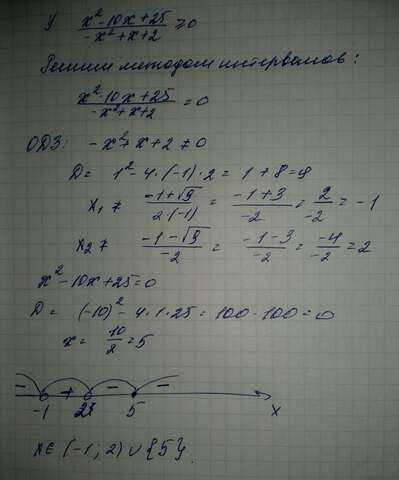 У x²-10x+25 / -x²+x+2 ≥ 0
Решим методом интервалов:
x²-10x+25 / -x²+x+2 = 0
ОДЗ: -x²+x+2 ≠ 0
D = 1² - 4·(-1)·2 = 1+8=9
x₁ ≠ -1+√9 / 2·(-1) = -1+3 / -2 = 2 / -2 = -1
x₂ ≠ -1-√9 / -2 = -1-3 / -2 = -4 / -2 = 2
x²-10x+25=0
D = (-10)² - 4·1·25 = 100-100=0
x = 10/2 = 5
- + - -
-1 2 5 x
x∈ (-1; 2) ∪ {5}.